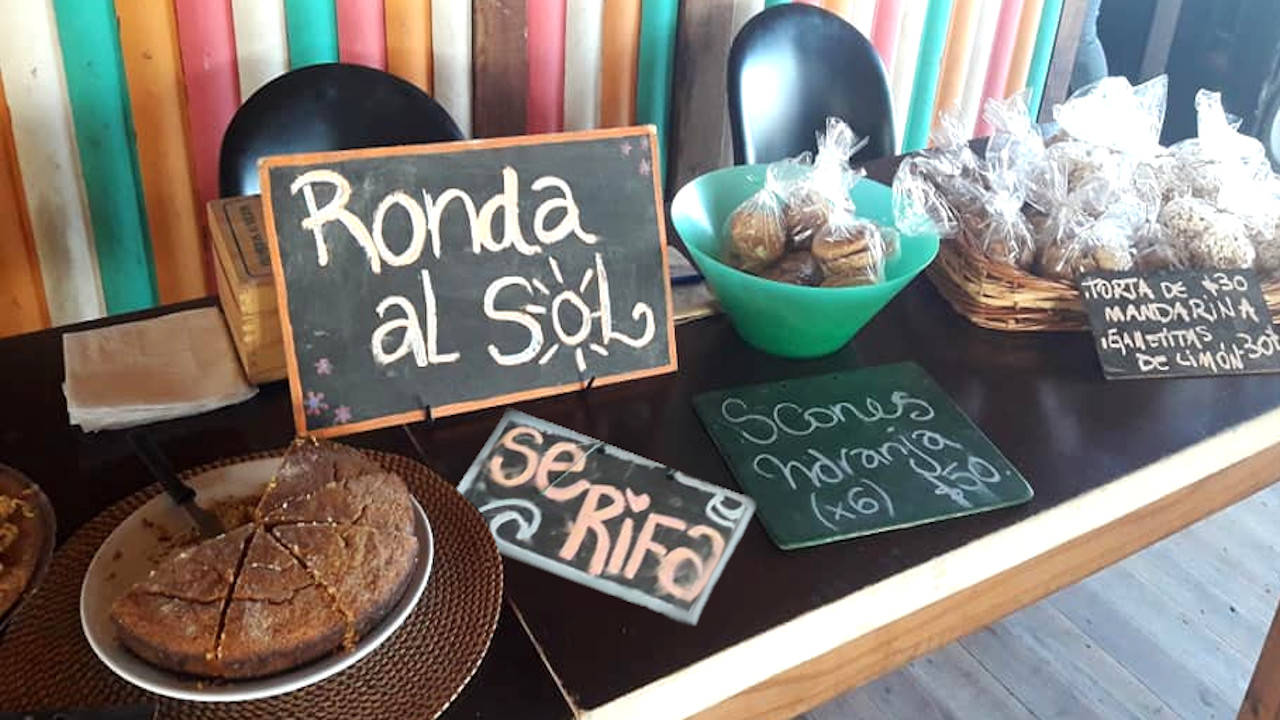 Ronda
al SoL
Se
RiFa
Scones
Naranja
(x6) $50
TORTA DE $30
MANDARINA
GALLETITAS
DE LIMÓN 30